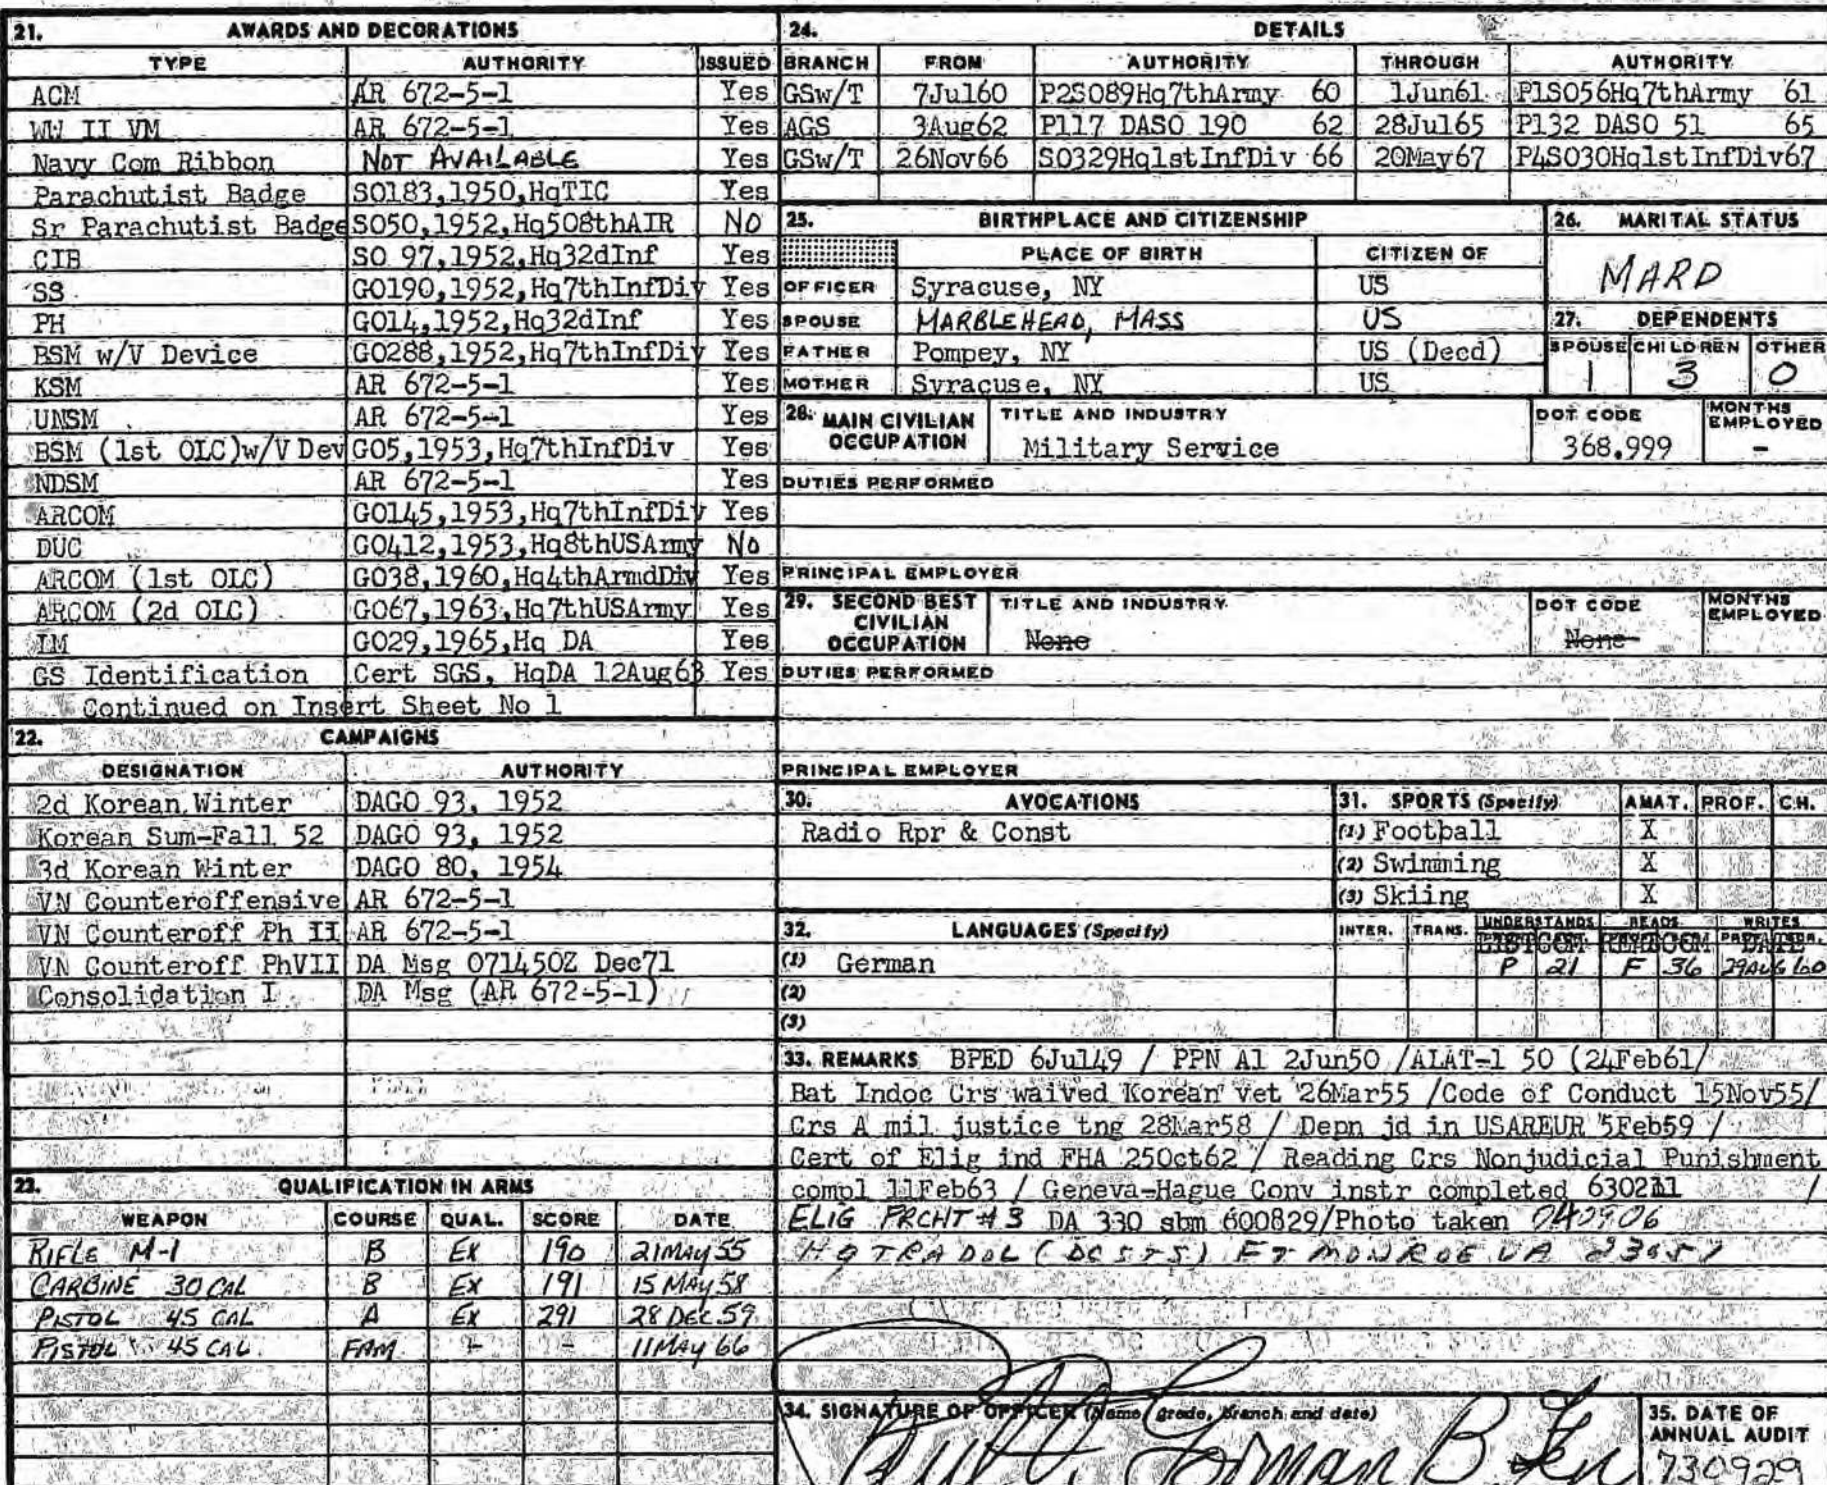 21. AWARDS AND DECORATIONS
TYPE AUTHORITY ISSUED
ACM AR 672-5-1 Yes
WW II VM AR 672-5-1 Yes
Navy Com Ribbon NOT AVAILABLE Yes
Parachutist Badge SO183,1950,HqTIC Yes
Sr Parachutist Badge SO50,1952,Hq508thAIR NO
CIB SO 97,1952,Hq32dInf Yes
SS GO190,1952,Hq7thInfDiv Yes
PH GO14,1952,Hq32dInf Yes
BSM w/V Device GO288,1952,Hq7thInfDiv Yes
KSM AR 672-5-1 Yes
UNSM AR 672-5-1 Yes
BSM (1st OLC)w/V Dev GO5,1953,Hq7thInfDiv Yes
NDSM AR 672-5-1 Yes
ARCOM GO145,1953,Hq7thInfDiv Yes
DUC GO412,1953,Hq8thUSArmy No
ARCOM (1st OLC) GO38,1960,Hq4thArmdDiv Yes
ARCOM (2d OLC) GO67,1963,Hq7thUSArmy Yes
LM GO29,1965,Hq DA Yes
GS Identification Cert SGS, HqDA 12Aug63 Yes
Continued on Insert Sheet No 1
22. CAMPAIGNS
DESIGNATION AUTHORITY
2d Korean Winter DAGO 93, 1952
Korean Sum-Fall 52 DAGO 93, 1952
3d Korean Winter DAGO 80, 1954
VN Counteroffensive AR 672-5-1
VN Counteroff Ph II AR 672-5-1
VN Counteroff PhVII DA Msg 071450Z Dec71
Consolidation I DA Msg (AR 672-5-1)
23. QUALIFICATION IN ARMS
WEAPON COURSE QUAL. SCORE DATE
RIFLE M-1 B EX 190 21MAY55
CARBINE 30 CAL B EX 191 15 MAY58
PISTOL 45 CAL A EX 291 28 DEC 59
PISTOL 45 CAL FAM - - 11MAY 66
24. DETAILS
BRANCH FROM AUTHORITY THROUGH AUTHORITY
GSw/T 7Jul60 P2SO89Hq7thArmy 60 1Jun61 P1SO56Hq7thArmy 61
AGS 3Aug62 P117 DASO 190 62 28Jul65 P132 DASO 51 65
GSw/T 26Nov66 SO329Hq1stInfDiv 66 20May67 P4SO30Hq1stInfDiv67
25. BIRTHPLACE AND CITIZENSHIP
PLACE OF BIRTH CITIZEN OF
OFFICER Syracuse, NY US
SPOUSE MARBLEHEAD, MASS US
FATHER Pompey, NY US (Decd)
MOTHER Syracuse, NY US
26. MARITAL STATUS
MARD
27. DEPENDENTS
SPOUSE CHILDREN OTHER
1 3 0
28. MAIN CIVILIAN OCCUPATION TITLE AND INDUSTRY DOT CODE MONTHS EMPLOYED
Military Service 368.999 -
DUTIES PERFORMED
PRINCIPAL EMPLOYER
29. SECOND BEST CIVILIAN OCCUPATION TITLE AND INDUSTRY DOT CODE MONTHS EMPLOYED
None None
DUTIES PERFORMED
PRINCIPAL EMPLOYER
30. AVOCATIONS
Radio Rpr & Const
31. SPORTS (Specify) AMAT. PROF. C.H.
(1) Football X
(2) Swimming X
(3) Skiing X
32. LANGUAGES (Specify) INTER. TRANS. UNDERSTANDS READS WRITES
(1) German P 21 F 36 29AUG 60
(2)
(3)
33. REMARKS BPED 6Jul49 / PPN A1 2Jun50 /ALAT-1 50 (24Feb61/
Bat Indoc Crs waived Korean vet 26Mar55 /Code of Conduct 15Nov55/
Crs A mil justice tng 28Mar58 / Depn jd in USAREUR 5Feb59 /
Cert of Elig ind FHA 25Oct62 / Reading Crs Nonjudicial Punishment
compl 11Feb63 / Geneva-Hague Conv instr completed 630211 /
ELIG PRCHT #3 DA 330 sbm 600829/Photo taken
HQ TRADOC (DCSTS) FT MONROE VA 23651
34. SIGNATURE OF OFFICER (Name, grade, branch and date)
35. DATE OF ANNUAL AUDIT
730929